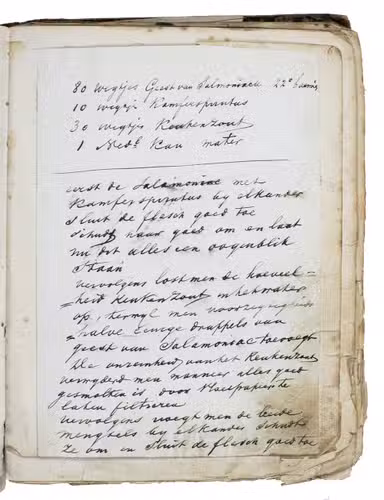 80 wigtjes Geest van Salmoniac 22°
10 wigtje Kamferspiritus
30 wigtjes Keukenzout
1 Nedl Kan water
eerst de Salamoniac met
Kamferspiritus by elkander
Sluit de flesch goed toe
Schudt haar goed om en laat
nu dit alles een oogenblik
Staan
vervolgens lost men de hoeveel=
=heid Keukenzout in het water
op, terwyl men voorzigtigheids
halve Eenige druppels van
geest van Salamoniac toevoegt
De onreinheid van het Keukenzout
verwyderd men wanneer alles goed
gesmolten is door Vloeipapier te
laten filtreren
vervolgens voegt men de beide
mengsels by elkander Schudt
ze om en Sluit de flesch goed toe